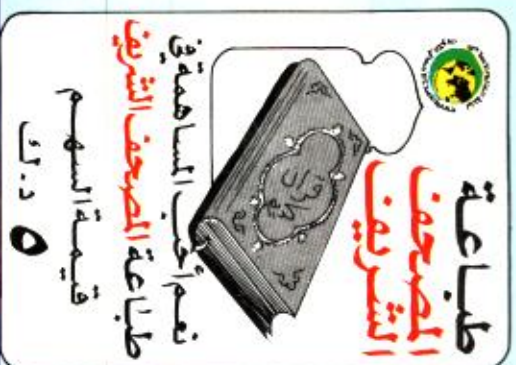 طباعة
المصحف
الشريف
القرآن
الكريم
نعم أحب المساهمة في
طباعة المصحف الشريف
قيمة السهم
٥ د.ك